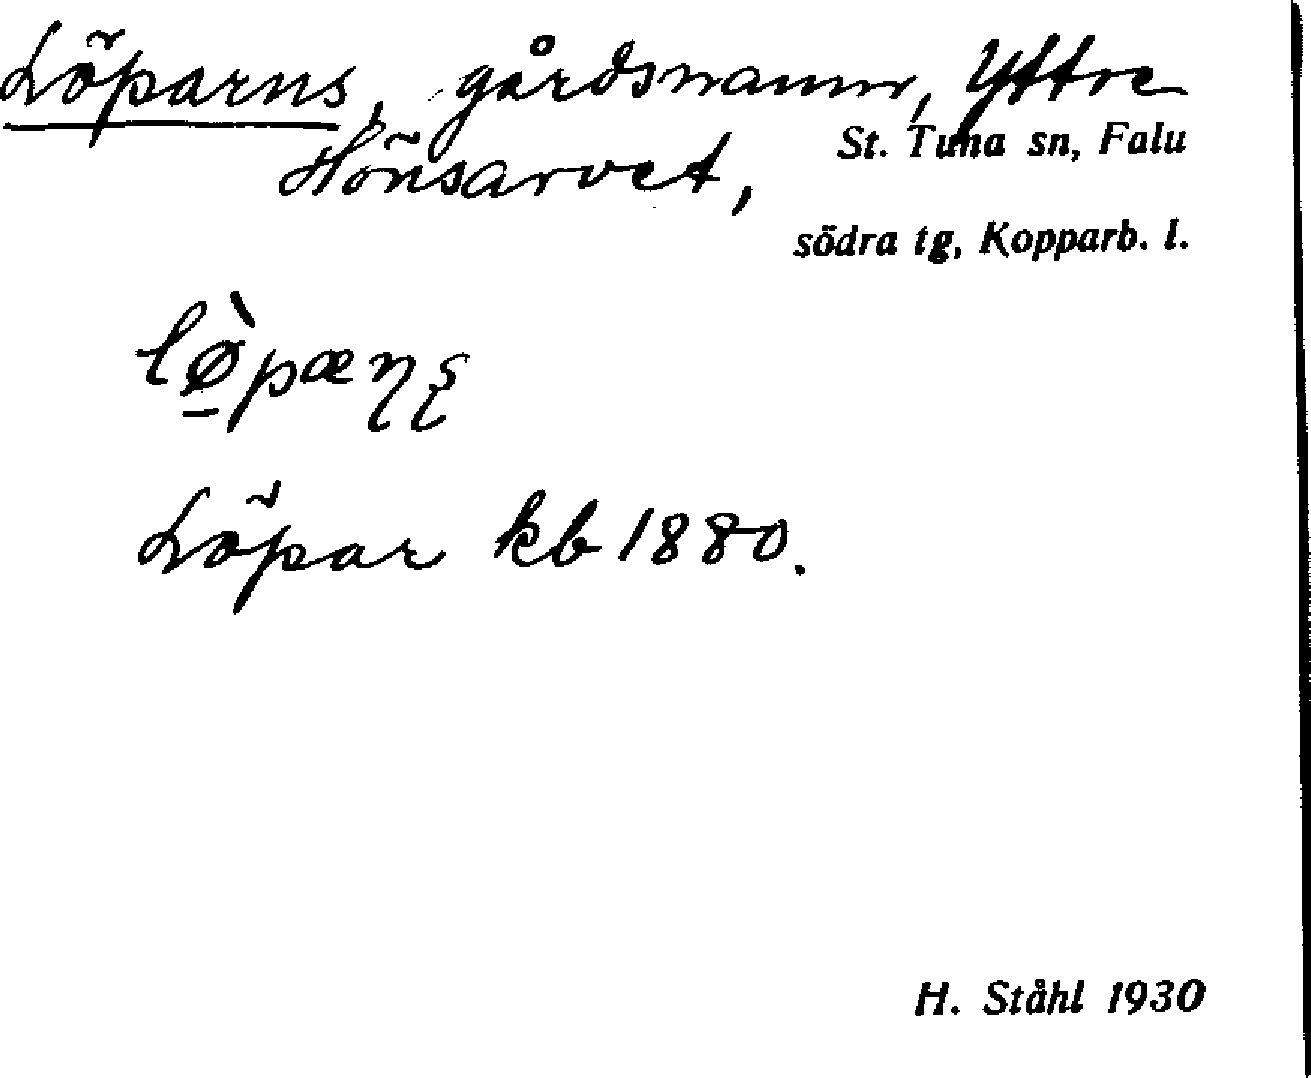 Löparns, gårdsnamn, Yttre
Hönsarvet, St. Tuna sn, Falu
södra tg, Kopparb. l.
lø̠̀pæɳʂ
Löpar kb 1880.
H. Ståhl 1930